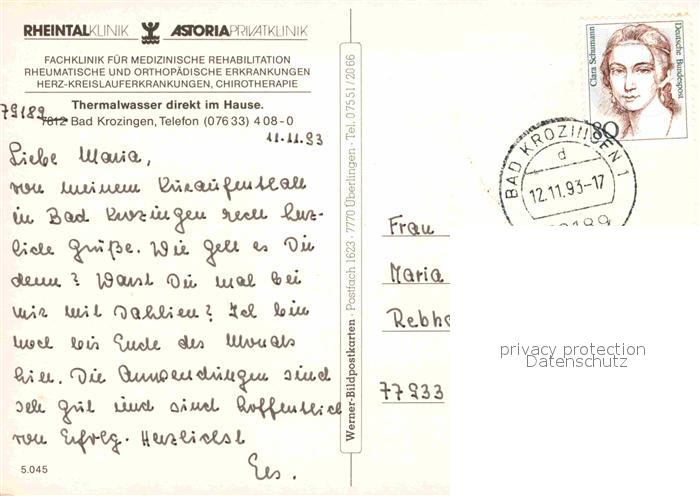 RHEINTALKLINIK ASTORIAPRIVATKLINIK
FACHKLINIK FÜR MEDIZINISCHE REHABILITATION
RHEUMATISCHE UND ORTHOPÄDISCHE ERKRANKUNGEN
HERZ-KREISLAUFERKRANKUNGEN, CHIROTHERAPIE
Thermalwasser direkt im Hause.
79189 7812 Bad Krozingen, Telefon (07633) 408-0
11.11.93
Liebe Maria,
von meinem Kuraufenthalt
in Bad Krozingen recht herz-
liche Grüße. Wie geht es Dir
denn? Warst Du mal bei
mir mit Dahlien? Ich bin
noch bis Ende des Monats
hier. Die Anwendungen sind
sehr gut und sind hoffentlich
von Erfolg. Herzlichst
5.045
Werner-Bildpostkarten · Postfach 1623 · 7770 Überlingen · Tel. 07551/2066
Clara Schumann
Deutsche Bundespost
80
BAD KROZINGEN 1
d
12.11.93-17
79189
Frau
Maria
Rebho
77933
privacy protection
Datenschutz